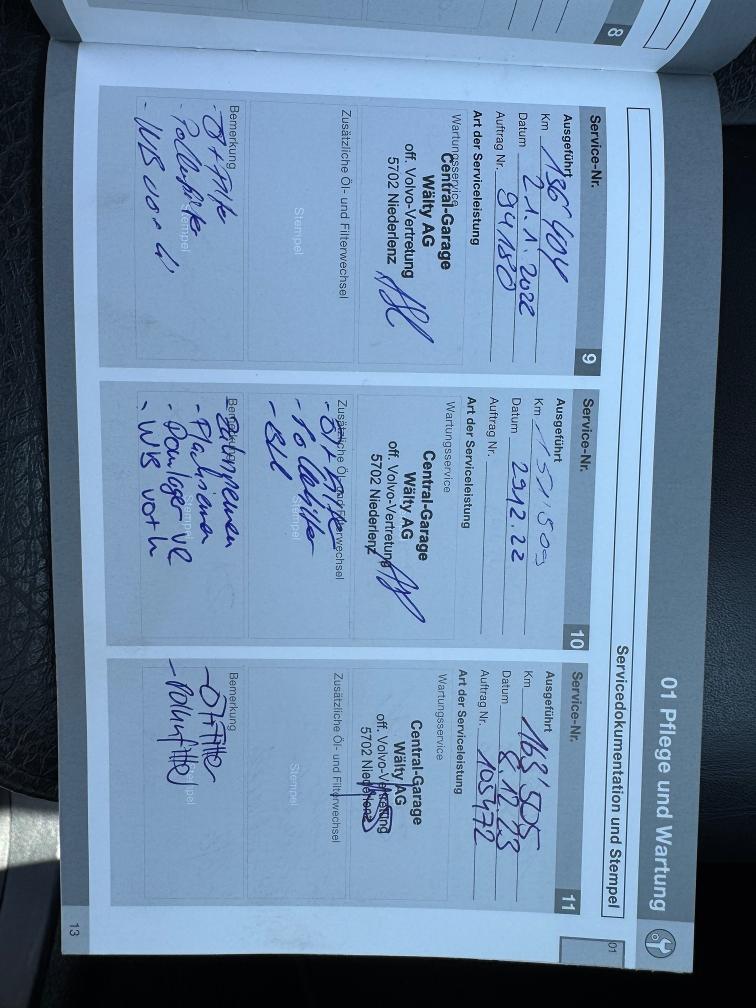 8
01 Pflege und Wartung
Servicedokumentation und Stempel
01
Service-Nr. 9
Ausgeführt
Km 136'404
Datum 21.1.2022
Auftrag Nr. 94180
Art der Serviceleistung
Wartungsservice
Central-Garage
Wälty AG
off. Volvo-Vertretung
5702 Niederlenz
Zusätzliche Öl- und Filterwechsel
Stempel
Bemerkung
- Öl + Filter
- Pollenfilter
Stempel
- WB vorn
Service-Nr. 10
Ausgeführt
Km 151'509
Datum 29.12.22
Auftrag Nr.
Art der Serviceleistung
Wartungsservice
Central-Garage
Wälty AG
off. Volvo-Vertretung
5702 Niederlenz
Zusätzliche Öl- und Filterwechsel
- Öl + Filter
- Pollenfilter
Stempel
Bemerkung
- Zahnriemen
- Flachriemen
Stempel
- Domlager VL
- WB vo + h
Service-Nr. 11
Ausgeführt
Km 163'505
Datum 8.12.23
Auftrag Nr. 105472
Art der Serviceleistung
Wartungsservice
Central-Garage
Wälty AG
off. Volvo-Vertretung
5702 Niederlenz
Zusätzliche Öl- und Filterwechsel
Stempel
Bemerkung
- Öl+Filter
- Pollenfilter
Stempel
13